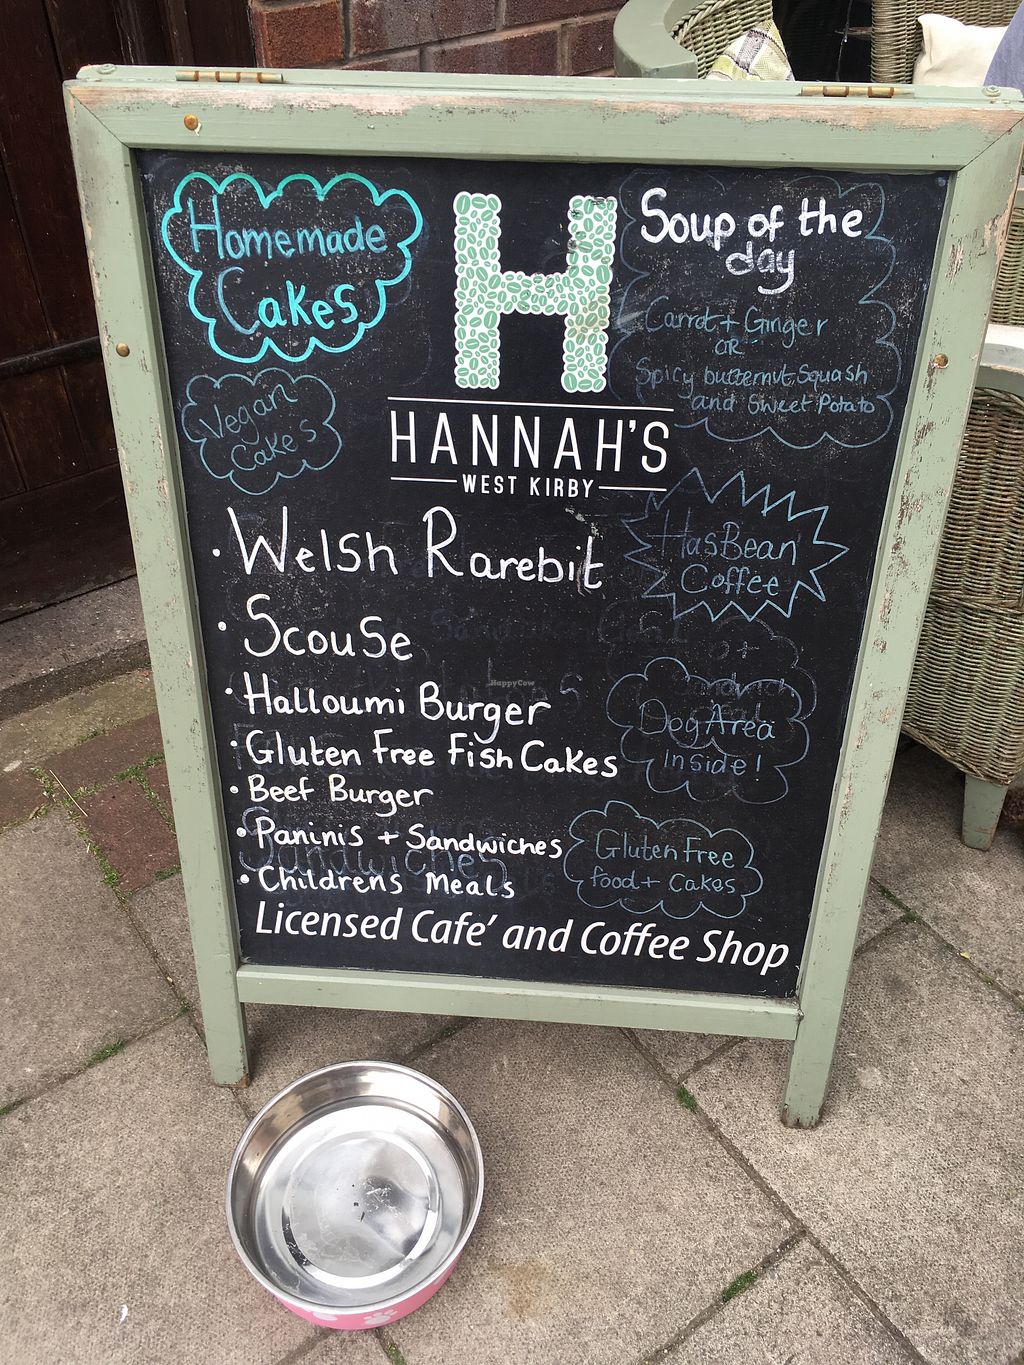 Homemade
Cakes
Vegan
Cakes
H
HANNAH'S
WEST KIRBY
Soup of the
day
Carrot + Ginger
OR
Spicy butternut Squash
and Sweet Potato
HasBean
Coffee
Dog Area
inside!
Gluten Free
food + Cakes
· Welsh Rarebit
· Scouse
· Halloumi Burger
· Gluten Free Fish Cakes
· Beef Burger
· Paninis + Sandwiches
· Childrens Meals
Sandwiches
Licensed Cafe' and Coffee Shop
HappyCow